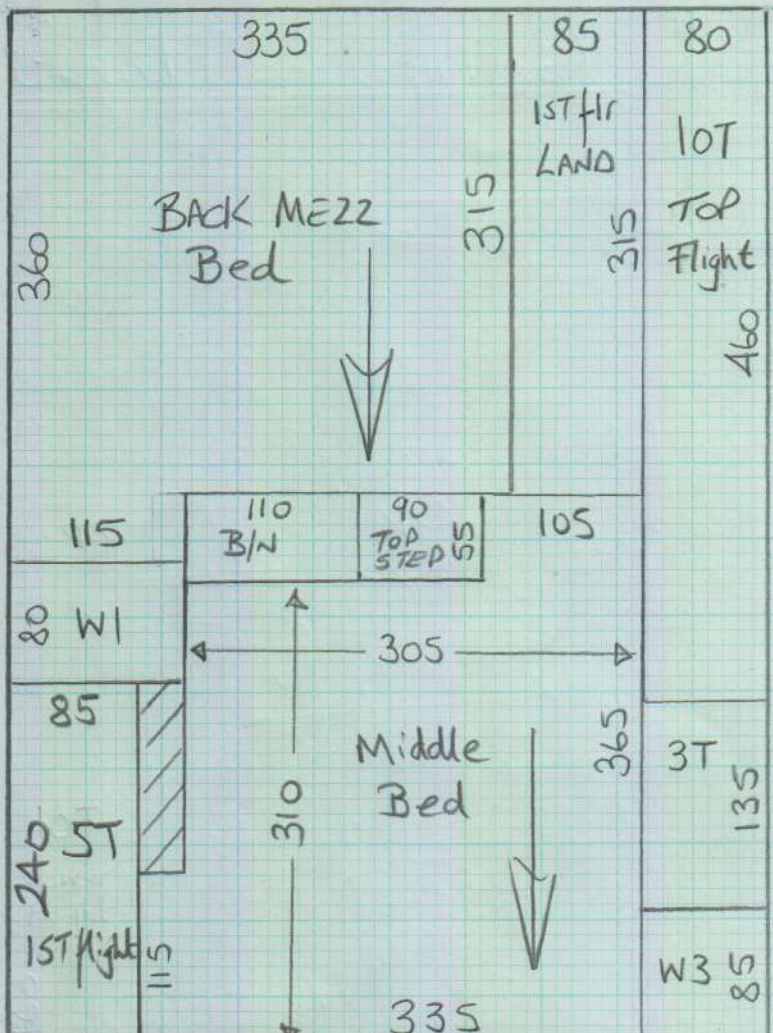 335
85
80
1ST flr
LAND
10T
TOP
Flight
315
315
BACK MEZZ
Bed
360
460
110
B/N
90
TOP
STEP
55
105
115
80
W1
305
85
Middle
Bed
365
3T
135
310
240
5T
1ST flight
115
W3
85
335